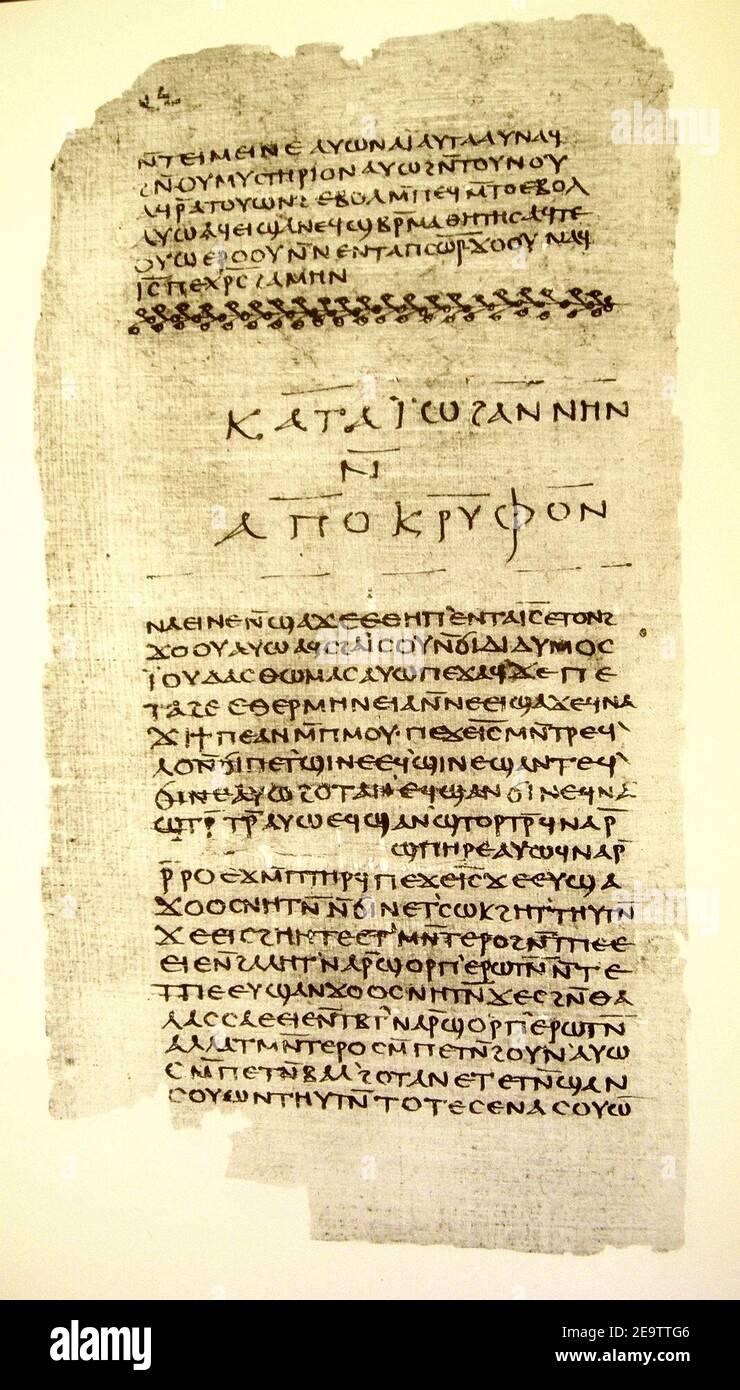 ⲛ̄ⲧⲉⲓⲙⲉⲓⲛⲉ ⲁⲩⲱ ⲛⲁⲓ ⲁⲩⲧⲁⲁⲩ ⲛⲁϥ
ϩⲛ̄ⲟⲩⲙⲩⲥⲧⲏⲣⲓⲟⲛ ⲁⲩⲱ ϩⲛ̄ⲧⲟⲩⲛⲟⲩ
ⲁϥⲣ̄ⲁⲧⲟⲩⲱⲛϩ ⲉⲃⲟⲗ ⲙ̄ⲡⲉϥⲙ̄ⲧⲟ ⲉⲃⲟⲗ
ⲁⲩⲱ ⲁϥⲉⲓ ϣⲁⲛⲉϥϣⲃⲣ̄ⲙⲁⲑⲏⲧⲏⲥ ⲁϥⲧⲉ
ⲟⲩⲱ ⲉⲣⲟⲟⲩ ⲛ̄ⲛⲉⲛⲧⲁⲡⲥⲱ̄ⲣ̄ ϫⲟⲟⲩ ⲛⲁϥ
ⲓ̄ⲥ̄ ⲡⲉⲭⲣ̄ⲥ̄ ϩⲁⲙⲏⲛ
ⲕⲁⲧⲁ ⲓ̈ⲱϩⲁⲛⲛⲏⲛ
ⲛ̄
ⲁⲡⲟⲕⲣⲩⲫⲟⲛ
ⲛⲁⲉⲓ ⲛⲉ ⲛ̄ϣⲁϫⲉ ⲉⲑⲏⲡ ⲉⲛⲧⲁⲓ̄ⲥ̄ ⲉⲧⲟⲛϩ
ϫⲟⲟⲩ ⲁⲩⲱ ⲁϥⲥϩⲁⲓ̈ⲥⲟⲩ ⲛ̄ϭⲓ ⲇⲓⲇⲩⲙⲟⲥ
ⲓ̈ⲟⲩⲇⲁⲥ ⲑⲱⲙⲁⲥ ⲁⲩⲱ ⲡⲉϫⲁϥ ϫⲉ ⲡⲉ
ⲧⲁϩⲉ ⲉⲑⲉⲣⲙⲏⲛⲉⲓⲁ ⲛ̄ⲛⲉⲉⲓϣⲁϫⲉ ϥⲛⲁ
ϫⲓ ϯⲡⲉ ⲁⲛ ⲙ̄ⲡⲙⲟⲩ· ⲡⲉϫⲉ ⲓ̄ⲥ̄ ⲙⲛ̄ⲧⲣⲉϥ
ⲗⲟ ⲛ̄ϭⲓ ⲡⲉⲧϣⲓⲛⲉ ⲉϥϣⲓⲛⲉ ϣⲁⲛⲧⲉϥ
ϭⲓⲛⲉ ⲁⲩⲱ ϩⲟⲧⲁⲛ ⲉϥϣⲁⲛϭⲓⲛⲉ ϥⲛⲁ
ϣⲧⲣ̄ⲧⲣ̄ ⲁⲩⲱ ⲉϥϣⲁⲛϣⲧⲟⲣⲧⲣ̄ ϥⲛⲁⲣ̄
ϣⲡⲏⲣⲉ ⲁⲩⲱ ϥⲛⲁⲣ̄
ⲣ̄ⲣⲟ ⲉϫⲙ̄ ⲡⲧⲏⲣϥ ⲡⲉϫⲉ ⲓ̄ⲥ̄ ϫⲉ ⲉⲩϣⲁ
ϫⲟⲟⲥ ⲛⲏⲧⲛ̄ ⲛ̄ϭⲓ ⲛⲉⲧⲥⲱⲕ ϩⲏⲧ ⲧⲏⲩⲧⲛ̄
ϫⲉ ⲉⲓⲥϩⲏⲏⲧⲉ ⲉⲧⲙⲛ̄ⲧⲉⲣⲟ ϩⲛ̄ ⲧⲡⲉ ⲉ
ⲉⲓⲉ ⲛ̄ϩⲁⲗⲏⲧ ⲛⲁⲣ̄ϣⲟⲣⲡ ⲉⲣⲱⲧⲛ̄ ⲛ̄ⲧⲉ
ⲧⲡⲉ ⲉⲩϣⲁⲛϫⲟⲟⲥ ⲛⲏⲧⲛ̄ ϫⲉ ⲥϩⲛ̄ ⲑⲁ
ⲗⲁⲥⲥⲁ ⲉⲉⲓⲉ ⲛ̄ⲧⲃⲧ ⲛⲁⲣ̄ϣⲟⲣⲡ ⲉⲣⲱⲧⲛ̄
ⲁⲗⲗⲁ ⲧⲙⲛ̄ⲧⲉⲣⲟ ⲥⲙ̄ⲡⲉⲧⲛ̄ϩⲟⲩⲛ ⲁⲩⲱ
ⲥⲙ̄ⲡⲉⲧⲛ̄ⲃⲁⲗ ϩⲟⲧⲁⲛ ⲉⲧⲉⲧⲛ̄ϣⲁⲛ
ⲥⲟⲩⲱⲛ ⲧⲏⲩⲧⲛ̄ ⲧⲟⲧⲉ ⲥⲉⲛⲁⲥⲟⲩⲱ̄
alamy
Image ID: 2E9TTG6
www.alamy.com